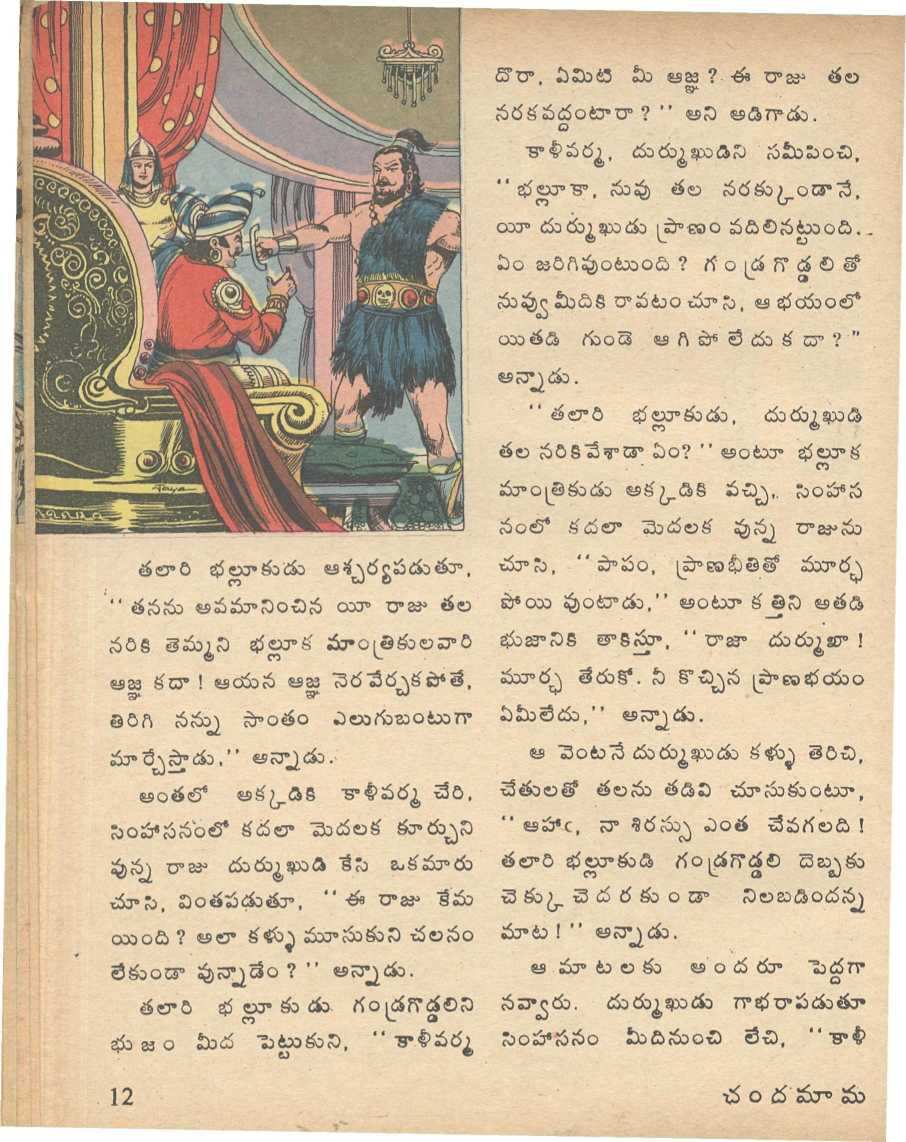 తలారి భల్లూకుడు ఆశ్చర్యపడుతూ,
‘‘తనను అవమానించిన యీ రాజు తల
నరికి తెమ్మని భల్లూక మాంత్రికులవారి
ఆజ్ఞ కదా! ఆయన ఆజ్ఞ నెరవేర్చకపోతే,
తిరిగి నన్ను సాంతం ఎలుగుబంటుగా
మార్చేస్తాడు,’’ అన్నాడు.
అంతలో అక్కడికి కాళీవర్మ చేరి,
సింహాసనంలో కదలా మెదలక కూర్చుని
వున్న రాజు దుర్ముఖుడి కేసి ఒకమారు
చూసి, వింతపడుతూ, ‘‘ఈ రాజు కేమ
యింది? అలా కళ్ళు మూసుకుని చలనం
లేకుండా వున్నాడేం?’’ అన్నాడు.
తలారి భల్లూకుడు గండ్రగొడ్డలిని
భుజం మీద పెట్టుకుని, ‘‘కాళీవర్మ
దొరా, ఏమిటి మీ ఆజ్ఞ? ఈ రాజు తల
నరకవద్దంటారా?’’ అని అడిగాడు.
కాళీవర్మ, దుర్ముఖుడిని సమీపించి,
‘‘భల్లూకా, నువు తల నరక్కుండానే,
యీ దుర్ముఖుడు ప్రాణం వదిలినట్టుంది.
ఏం జరిగివుంటుంది? గండ్రగొడ్డలితో
నువ్వుమీదికి రావటం చూసి, ఆ భయంలో
యితడి గుండె ఆగిపోలేదు కదా?"
అన్నాడు.
‘‘తలారి భల్లూకుడు, దుర్ముఖుడి
తల నరికివేశాడా ఏం?’’ అంటూ భల్లూక
మాంత్రికుడు అక్కడికి వచ్చి, సింహాస
నంలో కదలా మెదలక వున్న రాజును
చూసి, ‘‘పాపం, ప్రాణభీతితో మూర్ఛ
పోయి వుంటాడు,’’ అంటూ కత్తిని అతడి
భుజానికి తాకిస్తూ, ‘‘రాజా దుర్ముఖా!
మూర్ఛ తేరుకో. నీ కొచ్చిన ప్రాణభయం
ఏమీలేదు,’’ అన్నాడు.
ఆ వెంటనే దుర్ముఖుడు కళ్ళు తెరిచి,
చేతులతో తలను తడివి చూసుకుంటూ,
‘‘ఆహాఁ, నా శిరస్సు ఎంత చేవగలది!
తలారి భల్లూకుడి గండ్రగొడ్డలి దెబ్బకు
చెక్కు చెదరకుండా నిలబడిందన్న
మాట!’’ అన్నాడు.
ఆ మాటలకు అందరూ పెద్దగా
నవ్వారు. దుర్ముఖుడు గాభరాపడుతూ
సింహాసనం మీదినుంచి లేచి, ‘‘కాళీ
12
చందమామ